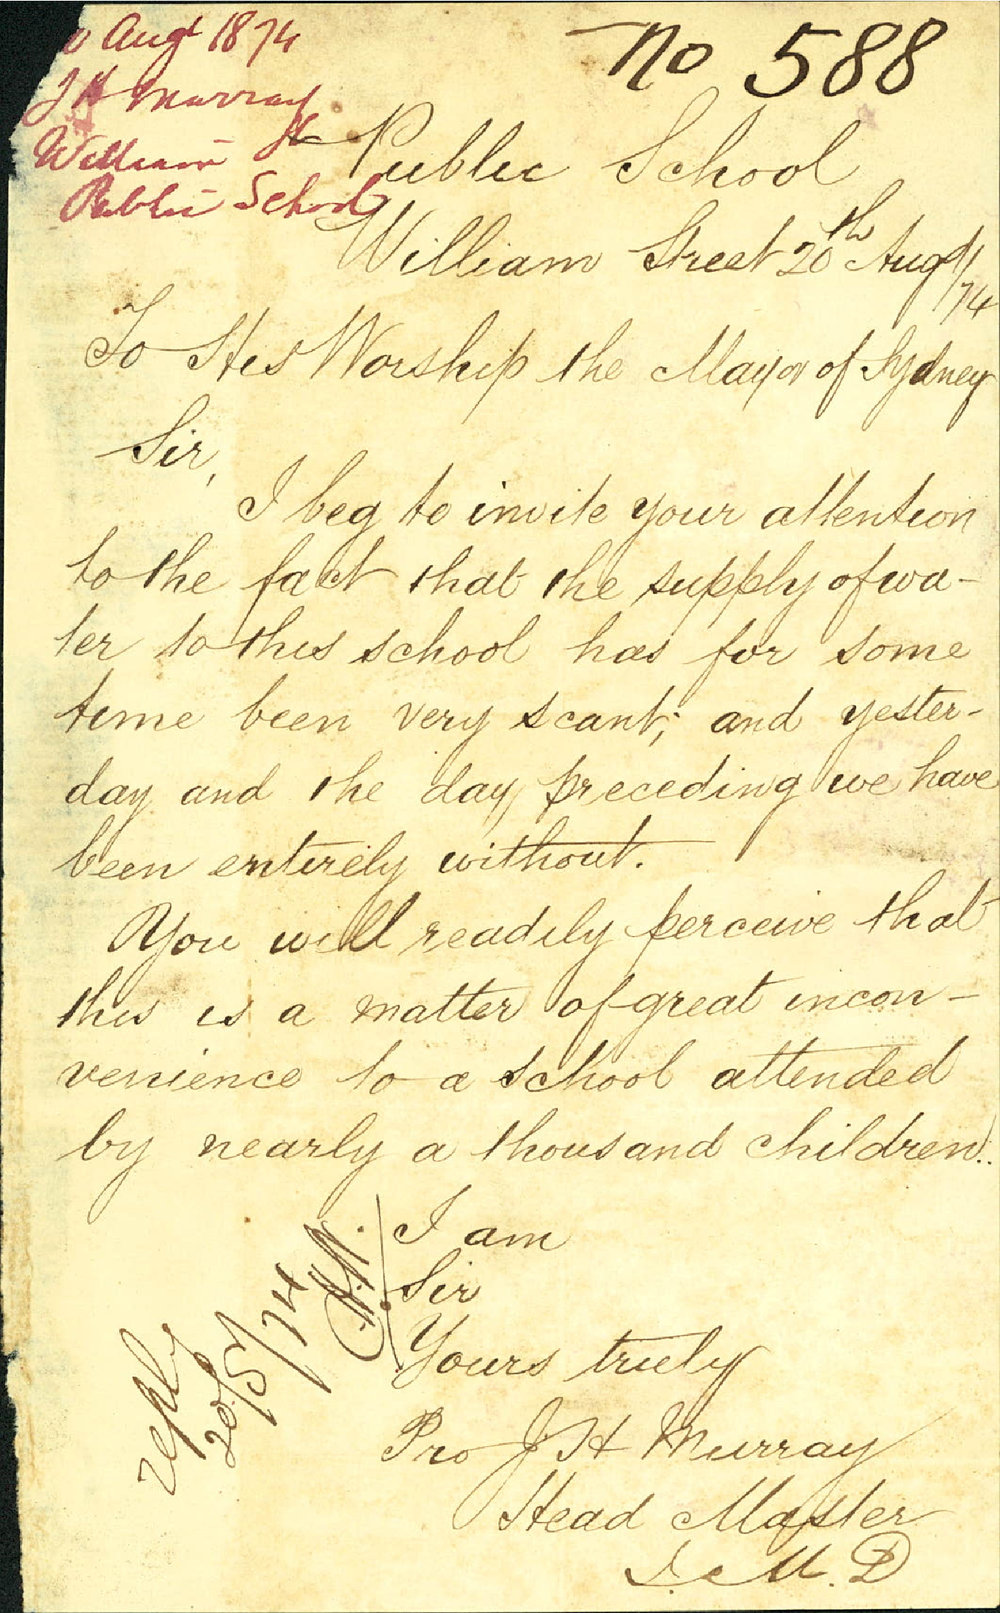 Augt 1874
J H Murray
William St
Public School
No 588
Public School
William Street 20th Augt/74
To His Worship the Mayor of Sydney
Sir,
I beg to invite your attention
to the fact that the supply of wa-
ter to this school has for some
time been very scant; and yester-
day and the day preceding we have
been entirely without.
You will readily perceive that
this is a matter of great incon-
venience to a school attended
by nearly a thousand children.
I am
Sir
Yours truly
Pro J H Murray
Head Master
reply